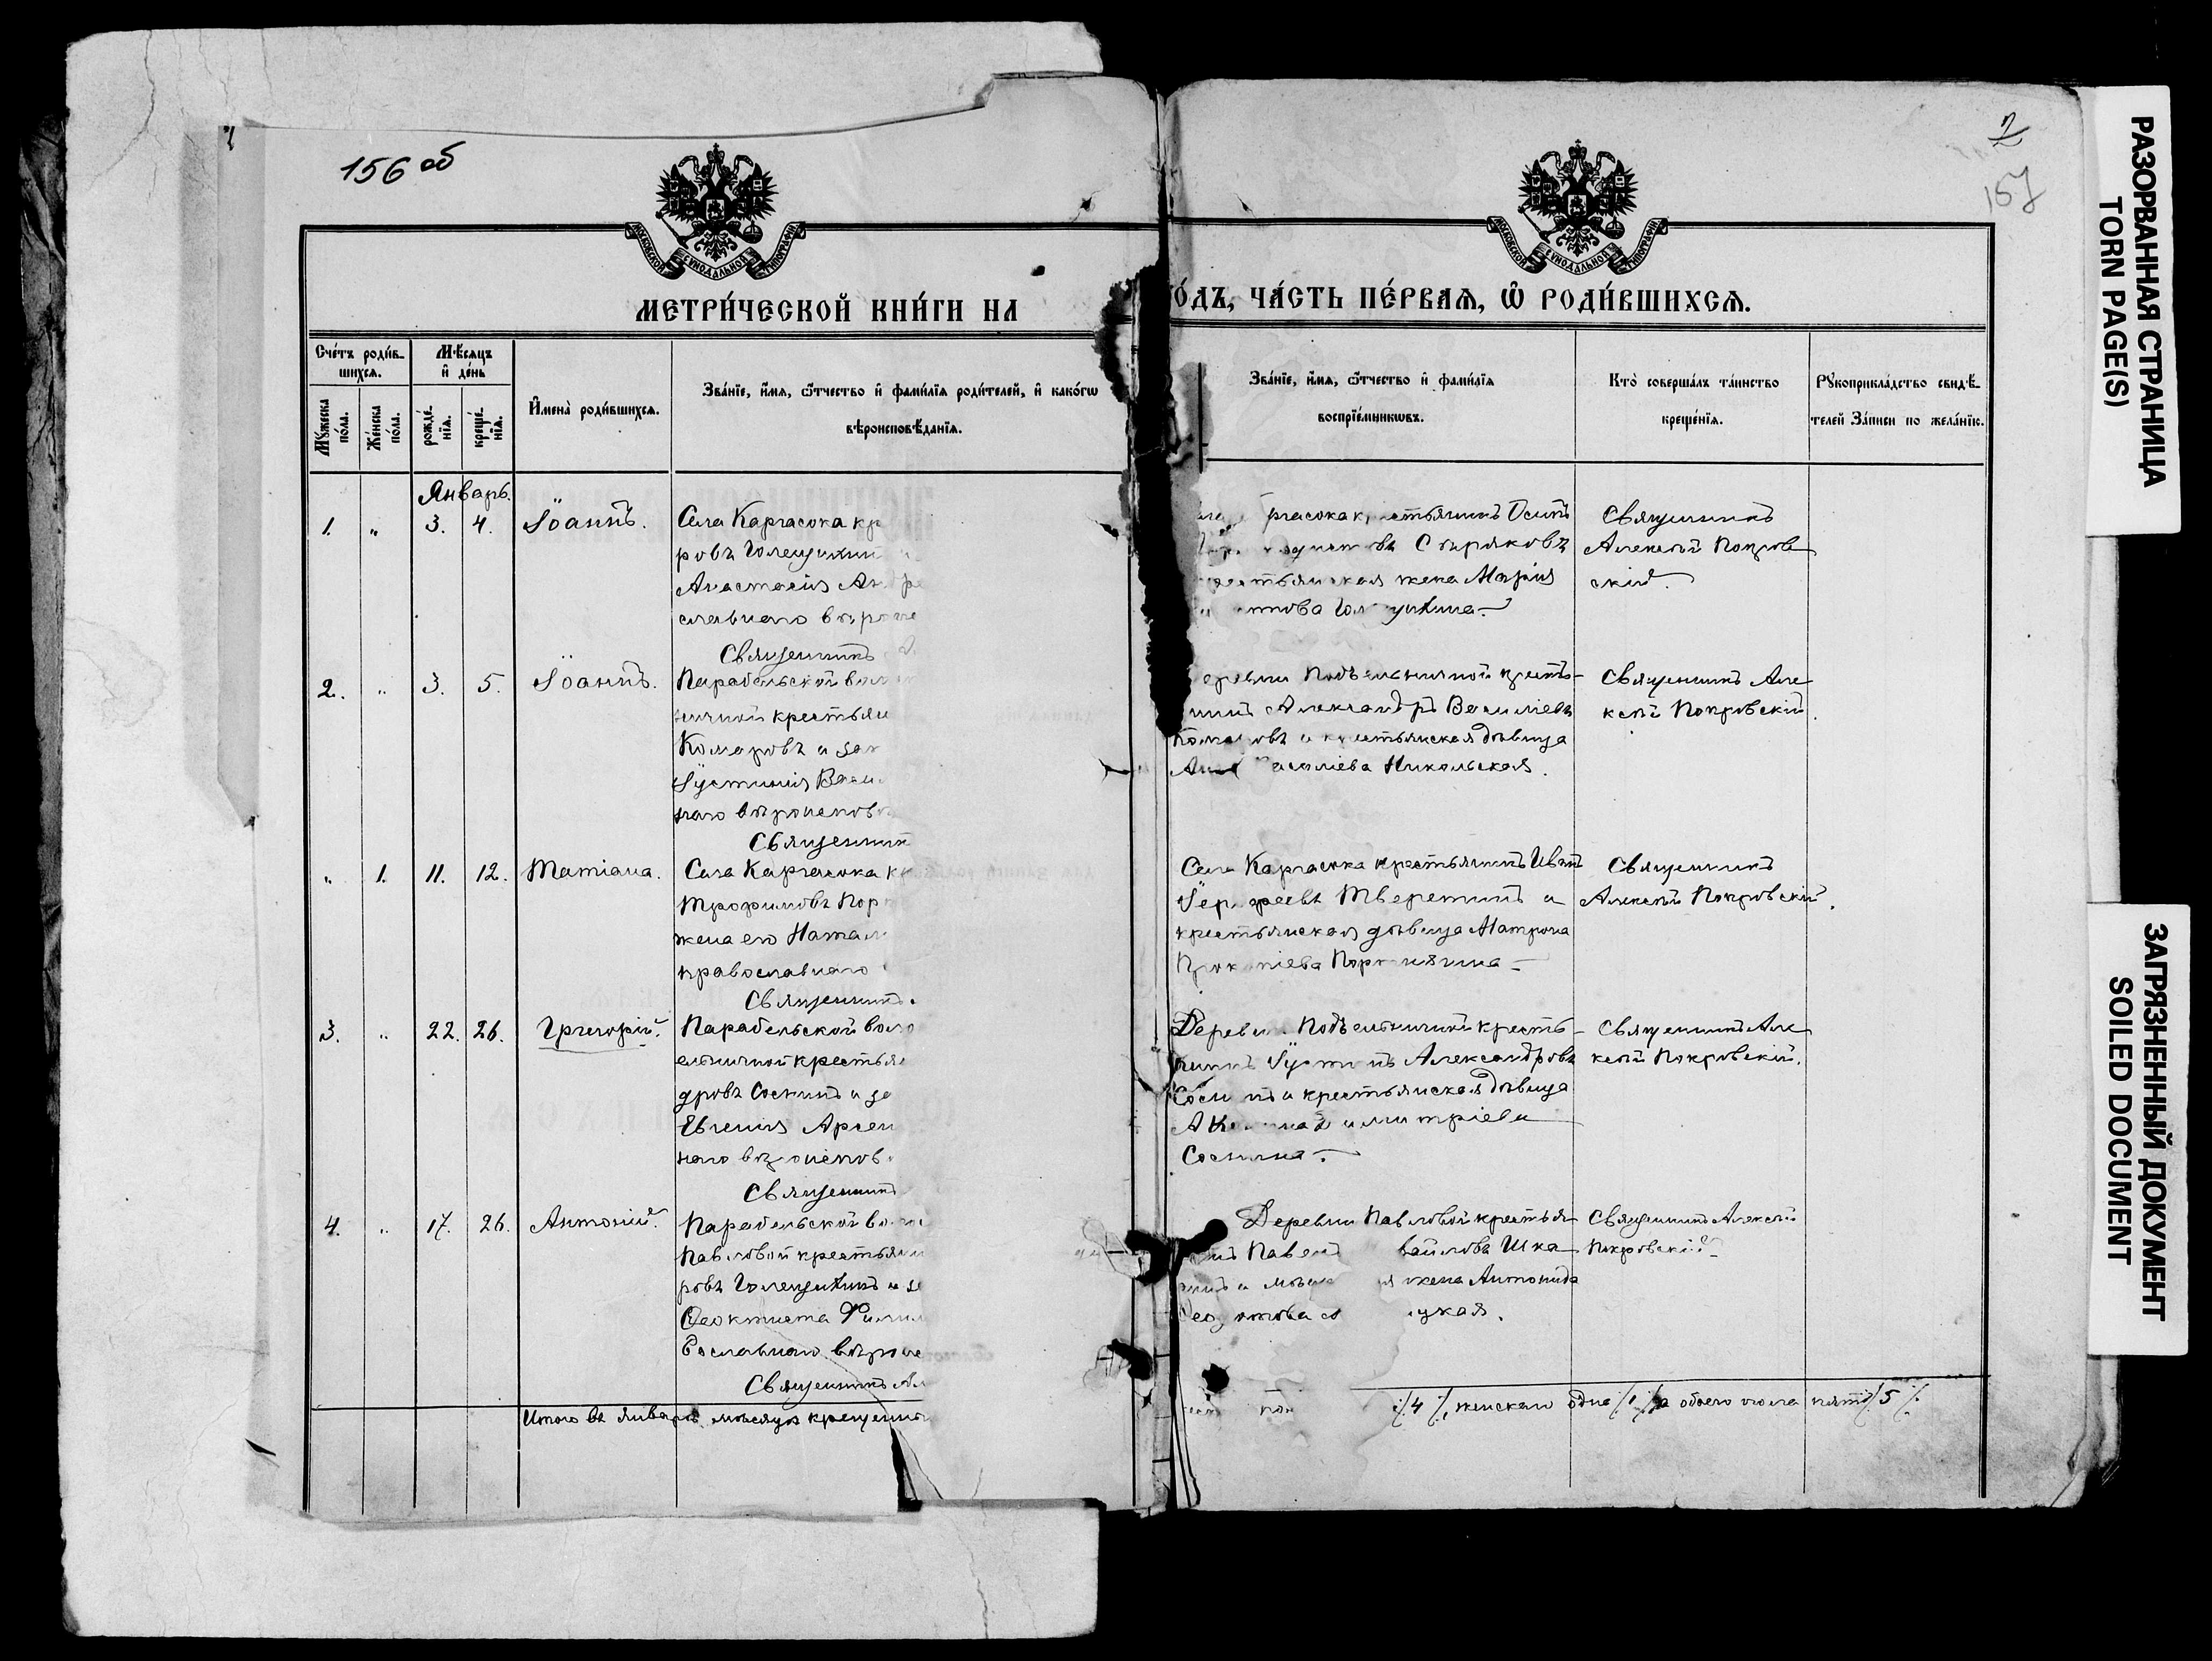 156 об
2
157
МОСКОВСКОЙ СѴНОДАЛЬНОЙ ТИПОГРАФІИ
МОСКОВСКОЙ СѴНОДАЛЬНОЙ ТИПОГРАФІИ
МЕТРИ́ЧЕСКОЙ КНИ́ГИ НА
О́ДЪ, ЧА́СТЬ ПЕ́РВАѦ, Ѡ҆ РОДИ́ВШИХСѦ.
Сче́тъ роди́в-
шихсѧ.
Мꙋ́жеска по́ла.
Же́нска по́ла.
Мѣ́сѧцъ
и҆ де́нь
рожде́-
нїѧ.
креще́-
нїѧ.
И҆мена̀ роди́вшихсѧ.
Зва́нїе, и҆́мѧ, ѻ҆́тчество и҆ фами́лїѧ роди́телей, и҆ како́гѡ
вѣроисповѣ́данїѧ.
Зва́нїе, и҆́мѧ, ѻ҆́тчество и҆ фами́лїѧ
воспрїе́мникѡвъ.
Кто̀ соверша́лъ та́инство
креще́нїѧ.
Рꙋкоприкла́дство свидѣ́-
телей За́писи по жела́нїю.
Январь.
1. „ 3. 4. Іоаннъ.
Села Каргасока кр
ровъ Голещихин
Анастасія Ан
славнаго вѣроис
Священникъ
села ргасока к стьянинъ Осипъ
Сыряковъ
жена Марія
Священникъ
Алексѣй Покров-
скій.
2. „ 3. 5. Іоаннъ.
Парабельской вол
ничной крестьян
Комаровъ и зак
Іустинія Васи
наго вѣроисповѣ
Священник
еревни Подъельничной кресть-
нинъ Александръ Васильевъ
Кома овъ и крестьянская дѣвица
Анна Васильева Никольская.
Священникъ Але-
ксѣй Покровскій.
„ 1. 11. 12. Татіана.
Села Каргасока кр
Трофимовъ Пор
жена его Натал
православнаго
Священникъ
Села Каргасока крестьянинъ Иванъ
Тверетинъ и
крестьянская дѣвица Матрона
Прокопіева
Священникъ
Алексѣй Покровскій.
3. „ 22. 26. Григорій.
Парабельской воло
ельничной крестья
дровъ Соснинъ и за
Евгенія Арсен
наго вѣроисповѣ
Священникъ
Деревни Подъельничной кресть-
янинъ Іустинъ Александровъ
Соснинъ и крестьянская дѣвица
Димитріева
Соснина.
Священникъ Але-
ксѣй Покровскій.
4. „ 17. 26. Антоній.
Парабельской волос
Павловой крестьян
ровъ Голещихинъ и за
Ѳеоктиста Филип
вославнаго вѣроис
Священникъ Ал
Деревни Павловой крестья-
нинъ Павелъ Шка-
жена Антонида
цкая.
Священникъ Алексѣй
Покровскій.
Итого въ январѣ мѣсяцѣ крещенны
/4/, женскаго одна /1/, а обоего пола пять /5/.
РАЗОРВАННАЯ СТРАНИЦА
TORN PAGE(S)
ЗАГРЯЗНЕННЫЙ ДОКУМЕНТ
SOILED DOCUMENT